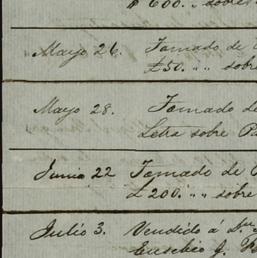 $ 600. " sobre
Mayo 26. Tomado de
£50. " " sobr
Mayo 28. Tomado de
Letra sobre Pa
Junio 22 Tomado de
£ 200. " " sobre
Julio 3. Vendido á
Eusebio J. B